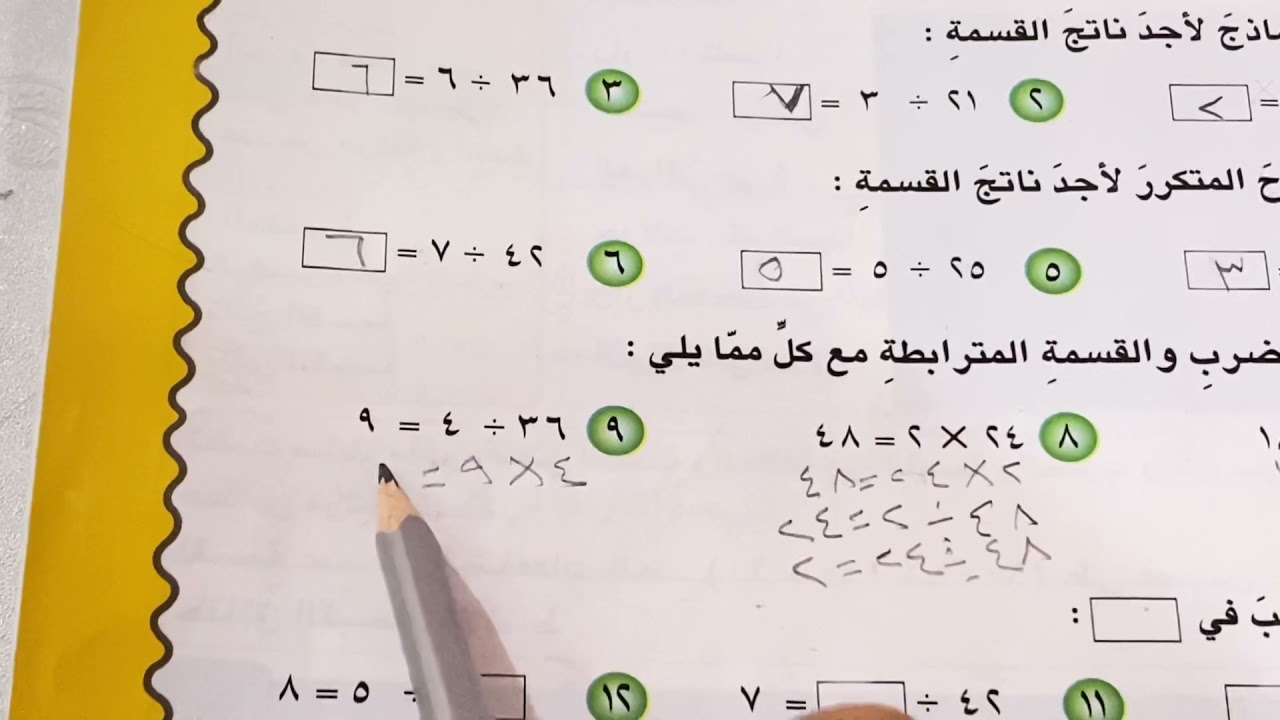 ماذجَ لأجدَ ناتجَ القسمةِ :
= ٢
٢ ٢١ ÷ ٣ = ٧
٣ ٣٦ ÷ ٦ = ٦
حَ المتكررَ لأجدَ ناتجَ القسمةِ :
= ٣
٥ ٢٥ ÷ ٥ = ٥
٦ ٤٢ ÷ ٧ = ٦
ضربِ والقسمةِ المترابطةِ مع كلٍّ ممّا يلي :
٨ ٢٤ × ٢ = ٤٨
٢ × ٢٤ = ٤٨
٤٨ ÷ ٢ = ٢٤
٤٨ ÷ ٢٤ = ٢
٩ ٣٦ ÷ ٤ = ٩
٤ × ٩ =
بَ في :
١١ ٤٢ ÷ = ٧
١٢ ÷ ٥ = ٨